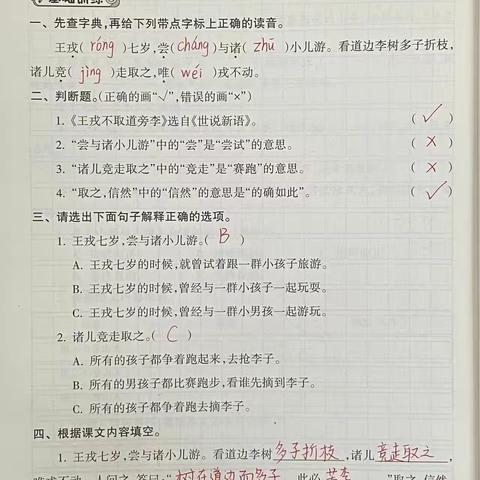 基础训练
一、先查字典,再给下列带点字标上正确的读音。
王戎( róng )七岁,尝( cháng )与诸( zhū )小儿游。看道边李树多子折枝,
诸儿竞( jìng )走取之,唯( wéi )戎不动。
二、判断题。(正确的画“√”,错误的画“×”)
1.《王戎不取道旁李》选自《世说新语》。 ( √ )
2. “尝与诸小儿游”中的“尝”是“尝试”的意思。 ( × )
3. “诸儿竞走取之”中的“竞走”是“赛跑”的意思。 ( × )
4. “取之,信然”中的“信然”的意思是“的确如此”。 ( √ )
三、请选出下面句子解释正确的选项。
1. 王戎七岁,尝与诸小儿游。( B )
A. 王戎七岁的时候,就曾试着跟一群小孩子旅游。
B. 王戎七岁的时候,曾经与一群小孩子一起玩耍。
C. 王戎七岁的时候,曾经与一群小男孩一起游玩。
2. 诸儿竞走取之。( C )
A. 所有的孩子都争着跑起来,去抢李子。
B. 所有的男孩子都比赛跑步,看谁先摘到李子。
C. 所有的孩子都争着跑去摘李子。
四、根据课文内容填空。
1. 王戎七岁,尝与诸小儿游。看道边李树多子折枝,诸儿竞走取之,
唯戎不动。人问之,答曰:“树在道边而多子,此必苦李。”取之,信然